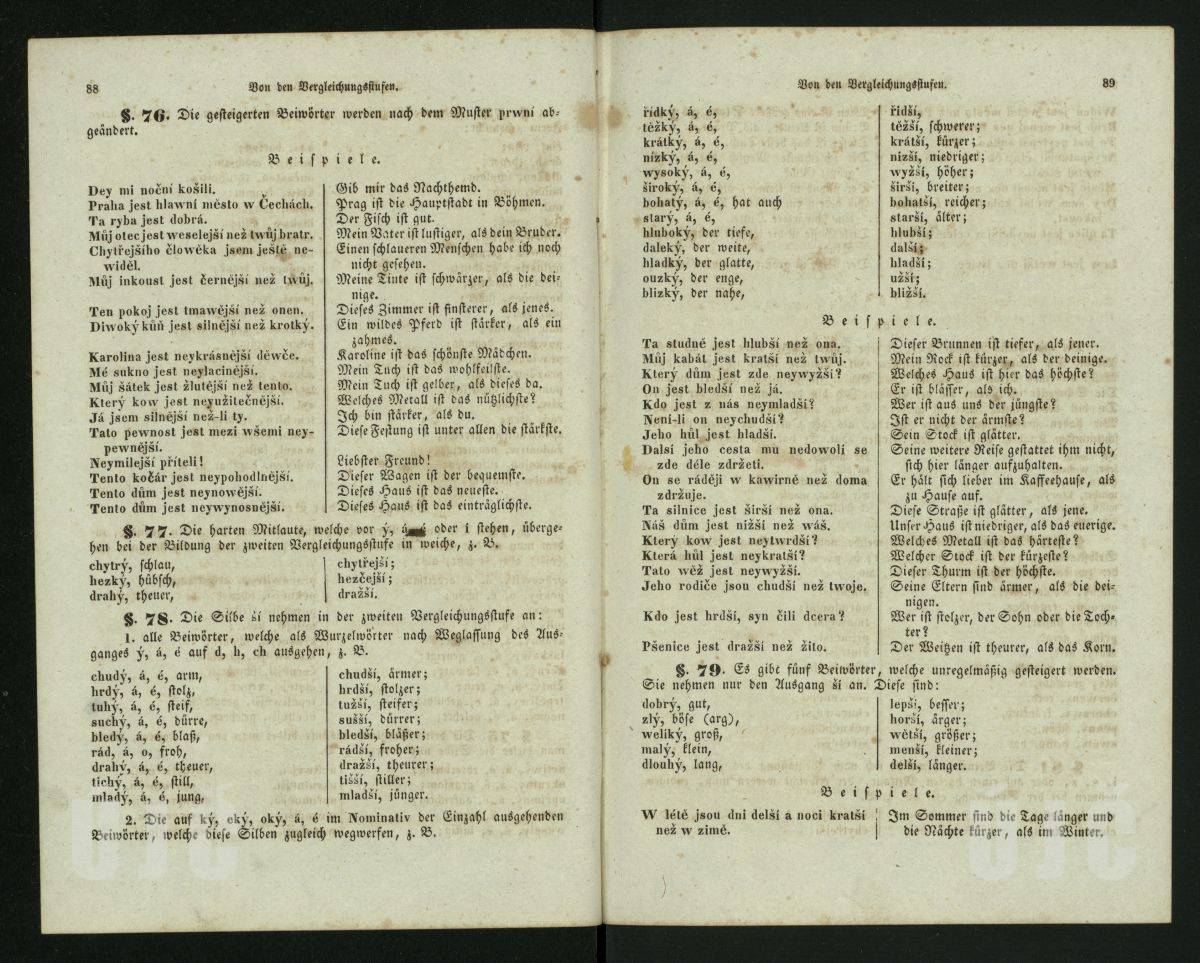 88 Von den Vergleichungsstufen.
§. 76. Die gesteigerten Beiwörter werden nach dem Muster prwní ab-
geändert.
Beispiele.
Dey mi noční košili. Gib mir das Nachthemd.
Praha jest hlawní město w Čechách. Prag ist die Hauptstadt in Böhmen.
Ta ryba jest dobrá. Der Fisch ist gut.
Můj otec jest weselejší než twůj bratr. Mein Vater ist lustiger, als dein Bruder.
Chytřejšího člowěka jsem ještě ne- Einen schlaueren Menschen habe ich noch
widěl. nicht gesehen.
Můj inkoust jest černější než twůj. Meine Tinte ist schwärzer, als die dei-
nige.
Ten pokoj jest tmawější než onen. Dieses Zimmer ist finsterer, als jenes.
Diwoký kůň jest silnější než krotký. Ein wildes Pferd ist stärker, als ein
zahmes.
Karolina jest neykrásnější děwče. Karoline ist das schönste Mädchen.
Mé sukno jest neylacinější. Mein Tuch ist das wohlfeilste.
Můj šátek jest žlutější než tento. Mein Tuch ist gelber, als dieses da.
Který kow jest neyužitečnější. Welches Metall ist das nützlichste?
Já jsem silnější než-li ty. Ich bin stärker, als du.
Tato pewnost jest mezi wšemi ney- Diese Festung ist unter allen die stärkste.
pewnější.
Neymilejší příteli! Liebster Freund!
Tento kočár jest neypohodlnější. Dieser Wagen ist der bequemste.
Tento dům jest neynowější. Dieses Haus ist das neueste.
Tento dům jest neywynosnější. Dieses Haus ist das einträglichste.
§. 77. Die harten Mitlaute, welche vor ý, á, é oder i stehen, überge-
hen bei der Bildung der zweiten Vergleichungsstufe in weiche, z. B.
chytrý, schlau, chytřejší;
hezký, hübsch, hezčejší;
drahý, theuer, dražší.
§. 78. Die Silbe ší nehmen in der zweiten Vergleichungsstufe an:
1. alle Beiwörter, welche als Wurzelwörter nach Weglassung des Aus-
ganges ý, á, é auf d, h, ch ausgehen, z. B.
chudý, á, é, arm, chudší, ärmer;
hrdý, á, é, stolz, hrdší, stolzer;
tuhý, á, é, steif, tužší, steifer;
suchý, á, é, dürre, sušší, dürrer;
bledý, á, é, blaß, bledší, bläßer;
rád, á, o, froh, rádší, froher;
drahý, á, é, theuer, dražší, theurer;
tichý, á, é, still, tišší, stiller;
mladý, á, é, jung, mladší, jünger.
2. Die auf ký, eký, oký, á, é im Nominativ der Einzahl ausgehenden
Beiwörter, welche diese Silben zugleich wegwerfen, z. B.
Von den Vergleichungsstufen. 89
řídký, á, é, řidší,
těžký, á, é, těžší, schwerer;
krátký, á, é, krátší, kürzer;
nízký, á, é, nizší, niedriger;
wysoký, á, é, wyžší, höher;
široký, á, é, širší, breiter;
bohatý, á, é, hat auch bohatší, reicher;
starý, á, é, starší, älter;
hluboký, der tiefe, hlubší;
daleký, der weite, další;
hladký, der glatte, hladší;
ouzký, der enge, užší;
blizký, der nahe, bližší.
Beispiele.
Ta studně jest hlubší než ona. Dieser Brunnen ist tiefer, als jener.
Můj kabát jest kratší než twůj. Mein Rock ist kürzer, als der deinige.
Který dům jest zde neywyžší? Welches Haus ist hier das höchste?
On jest bledší než já. Er ist blässer, als ich.
Kdo jest z nás neymladší? Wer ist aus uns der jüngste?
Není-li on neychudší? Ist er nicht der ärmste?
Jeho hůl jest hladší. Sein Stock ist glätter.
Dalsí jeho cesta mu nedowolí se Seine weitere Reise gestattet ihm nicht,
zde déle zdržeti. sich hier länger aufzuhalten.
On se ráději w kawirně než doma Er hält sich lieber im Kaffeehause, als
zdržuje. zu Hause auf.
Ta silnice jest širší než ona. Diese Straße ist glätter, als jene.
Náš dům jest nižší než wáš. Unser Haus ist niedriger, als das euerige.
Který kow jest neytwrdší? Welches Metall ist das härteste?
Která hůl jest neykratší? Welcher Stock ist der kürzeste?
Tato wěž jest neywyžší. Dieser Thurm ist der höchste.
Jeho rodiče jsou chudší než twoje. Seine Eltern sind ärmer, als die dei-
nigen.
Kdo jest hrdší, syn čili dcera? Wer ist stolzer, der Sohn oder die Toch-
ter?
Pšenice jest dražší než žito. Der Weitzen ist theurer, als das Korn.
§. 79. Es gibt fünf Beiwörter, welche unregelmäßig gesteigert werden.
Sie nehmen nur den Ausgang ší an. Diese sind:
dobrý, gut, lepší, besser;
zlý, böse (arg), horší, ärger;
weliký, groß, wětší, größer;
malý, klein, menší, kleiner;
dlouhý, lang, delší, länger.
Beispiele.
W létě jsou dni delší a noci kratší Im Sommer sind die Tage länger und
než w zimě. die Nächte kürzer, als im Winter.